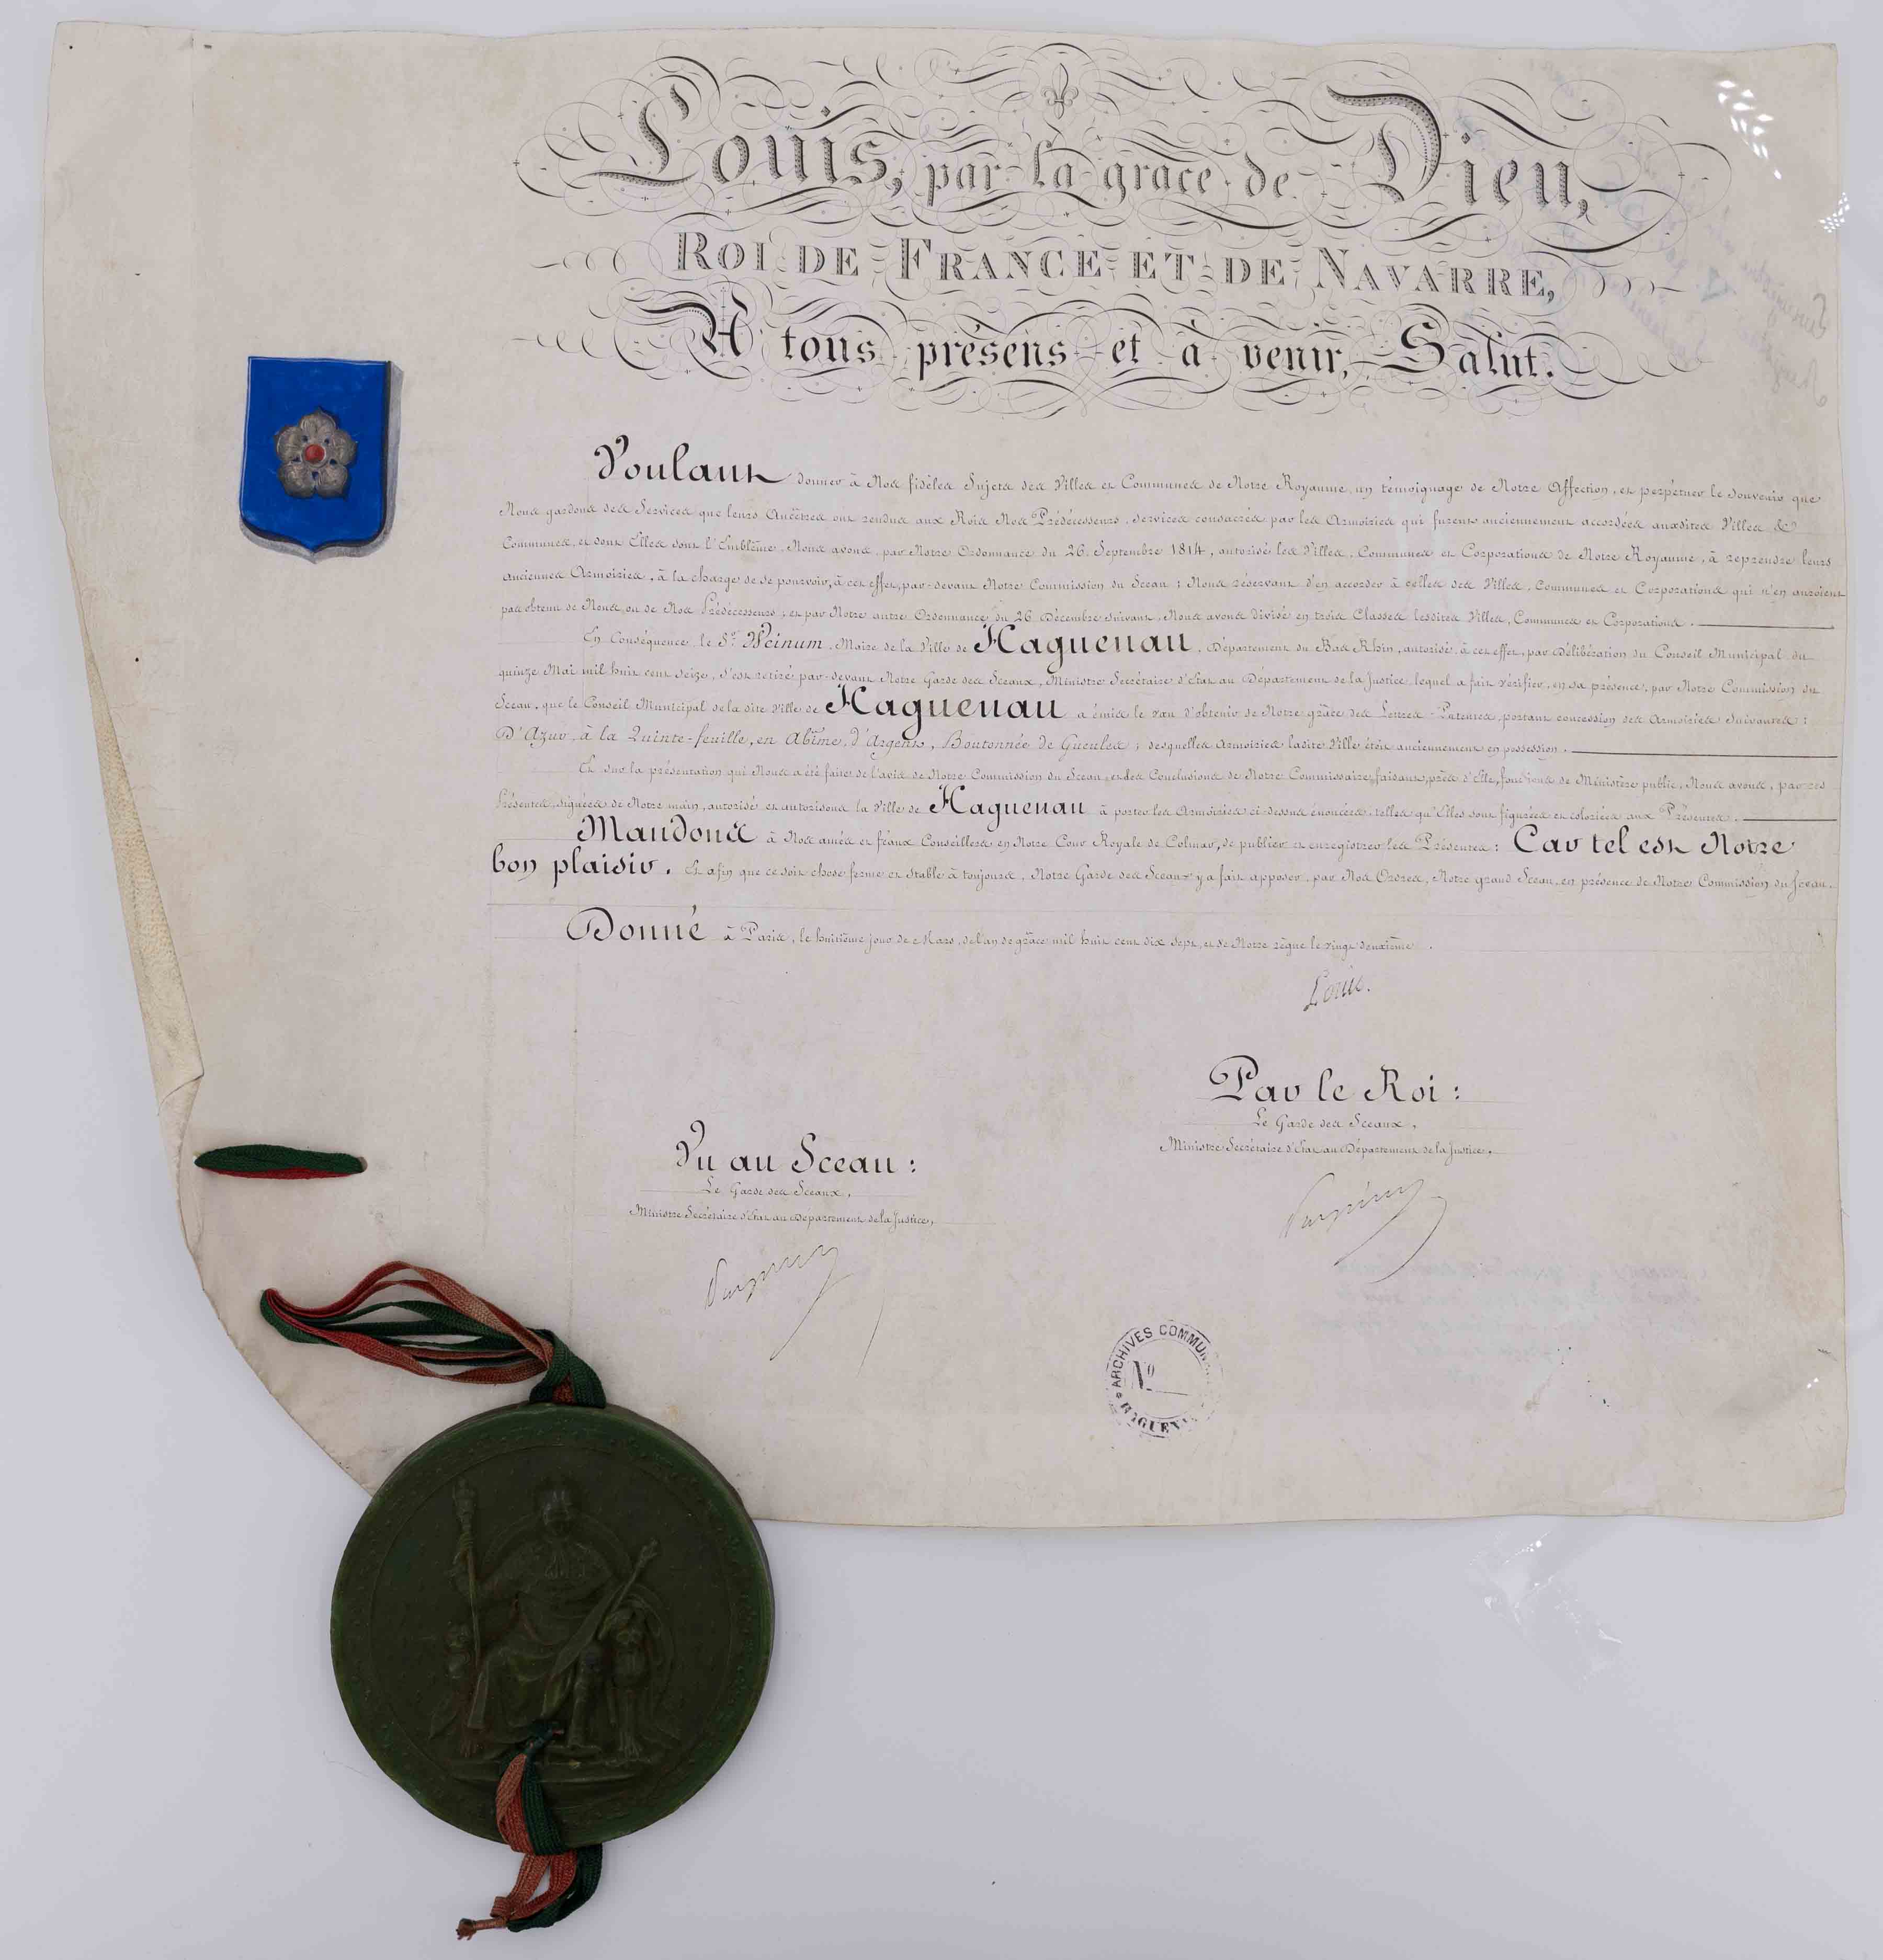 Louis, par la grace de Dieu,
ROI DE FRANCE ET DE NAVARRE,
A tous présens et à venir, Salut.
Voulant donner à Nos fidèles Sujets des Villes et Communes de Notre Royaume, un témoignage de Notre Affection, et perpétuer le Souvenir que
Nous gardons des Services que leurs Ancêtres ont rendus aux Rois Nos Prédécesseurs, Services consacrés par les Armoiries qui furent anciennement accordées auxdites Villes &
Communes, et dont Elles sont l'Emblême, Nous avons, par Notre Ordonnance du 26. Septembre 1814, autorisé les Villes, Communes et Corporations de Notre Royaume, à reprendre leurs
anciennes Armoiries, à la charge de se pourvoir, à cet effet, par-devant Notre Commission du Sceau ; Nous réservant d'en accorder à celles des Villes, Communes et Corporations qui n'en auroient
pas obtenu de Nous, ou de Nos Prédécesseurs ; et par Notre autre Ordonnance du 26 Décembre suivant, Nous avons divisé en trois Classes lesdites Villes, Communes et Corporations.
En Conséquence le Sr. Weinum, Maire de la Ville de Haguenau, Département du Bas Rhin, autorisé, à cet effet, par Délibération du Conseil Municipal du
quinze Mai mil huit cent seize, s'est retiré par-devant Notre Garde des Sceaux, Ministre Secrétaire d'Etat au Département de la Justice, lequel a fait vérifier, en sa présence, par Notre Commission du
Sceau, que le Conseil Municipal de la dite Ville de Haguenau a émis le vœu d'obtenir de Notre grâce des Lettres-Patentes, portant concession des Armoiries suivantes :
D'Azur, à la Quinte-feuille, en Abîme, d'Argent, Boutonnée de Gueules ; desquelles Armoiries ladite Ville étoit anciennement en possession.
Et sur la présentation qui Nous a été faite de l'avis de Notre Commission du Sceau, et des Conclusions de Notre Commissaire faisant, près d'Elle, fonctions de Ministère public, Nous avons, par ces
Présentes, signées de Notre main, autorisé et autorisons la Ville de Haguenau à porter les Armoiries ci-dessus énoncées, telles qu'Elles sont figurées et coloriées aux Présentes.
Mandons à Nos amés et féaux Conseillers en Notre Cour Royale de Colmar, de publier et enregistrer les Présentes : Car tel est Notre
bon plaisir. Et afin que ce soit chose ferme et stable à toujours, Notre Garde des Sceaux y a fait apposer, par Nos Ordres, Notre grand Sceau, en présence de Notre Commission du Sceau.
Donné à Paris, le huitième jour de Mars, de l'an de grâce mil huit cent dix sept, et de Notre règne le vingt deuxième.
Louis.
Par le Roi :
Le Garde des Sceaux,
Ministre Secrétaire d'Etat au Département de la Justice,
Vu au Sceau :
Le Garde des Sceaux,
Ministre Secrétaire d'Etat au Département de la Justice,
ARCHIVES COMMUN
No
HAGUEN